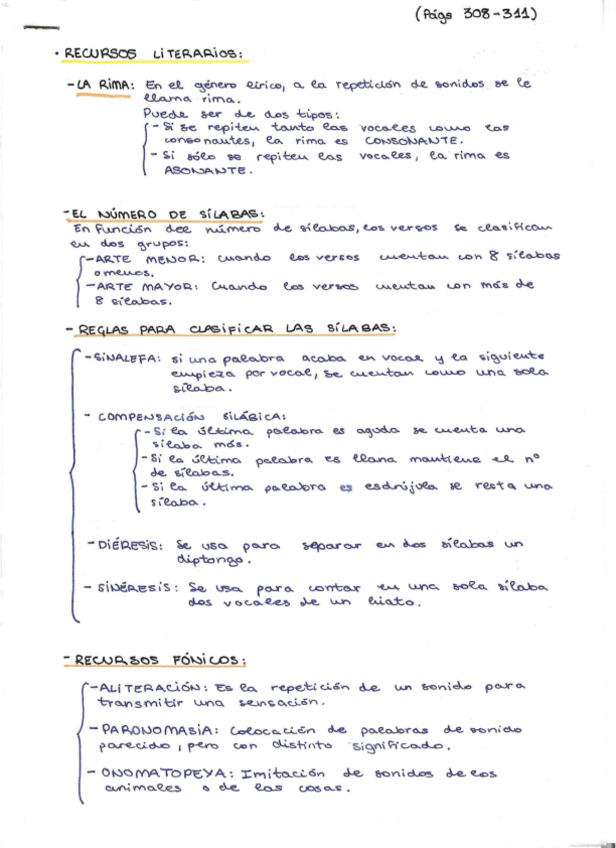 (Págs 308-311)
· RECURSOS LITERARIOS:
- LA RIMA: En el género lírico, a la repetición de sonidos se le
llama rima.
Puede ser de dos tipos:
- Si se repiten tanto las vocales como las
consonantes, la rima es CONSONANTE.
- Si sólo se repiten las vocales, la rima es
ASONANTE.
- EL NÚMERO DE SÍLABAS:
En función del número de sílabas, los versos se clasifican
en dos grupos:
- ARTE MENOR: Cuando los versos cuentan con 8 sílabas
o menos.
- ARTE MAYOR: Cuando los versos cuentan con más de
8 sílabas.
- REGLAS PARA CLASIFICAR LAS SÍLABAS:
- SINALEFA: si una palabra acaba en vocal y la siguiente
empieza por vocal, se cuentan como una sola
sílaba.
- COMPENSACIÓN SILÁBICA:
- Si la última palabra es aguda se cuenta una
sílaba más.
- Si la última palabra es llana mantiene el nº
de sílabas.
- Si la última palabra es esdrújula se resta una
sílaba.
- DIÉRESIS: Se usa para separar en dos sílabas un
diptongo.
- SINÉRESIS: Se usa para contar en una sola sílaba
dos vocales de un hiato.
- RECURSOS FÓNICOS:
- ALITERACIÓN: Es la repetición de un sonido para
transmitir una sensación.
- PARONOMASIA: Colocación de palabras de sonido
parecido, pero con distinto significado.
- ONOMATOPEYA: Imitación de sonidos de los
animales o de las cosas.